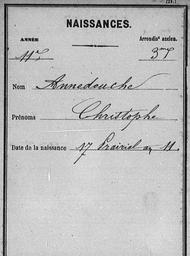 NAISSANCES.
ANNÉE
Arrondisst ancien.
11e
3me
Nom Annedouche
Prénoms Christophe
Date de la naissance 17 Prairial an 11